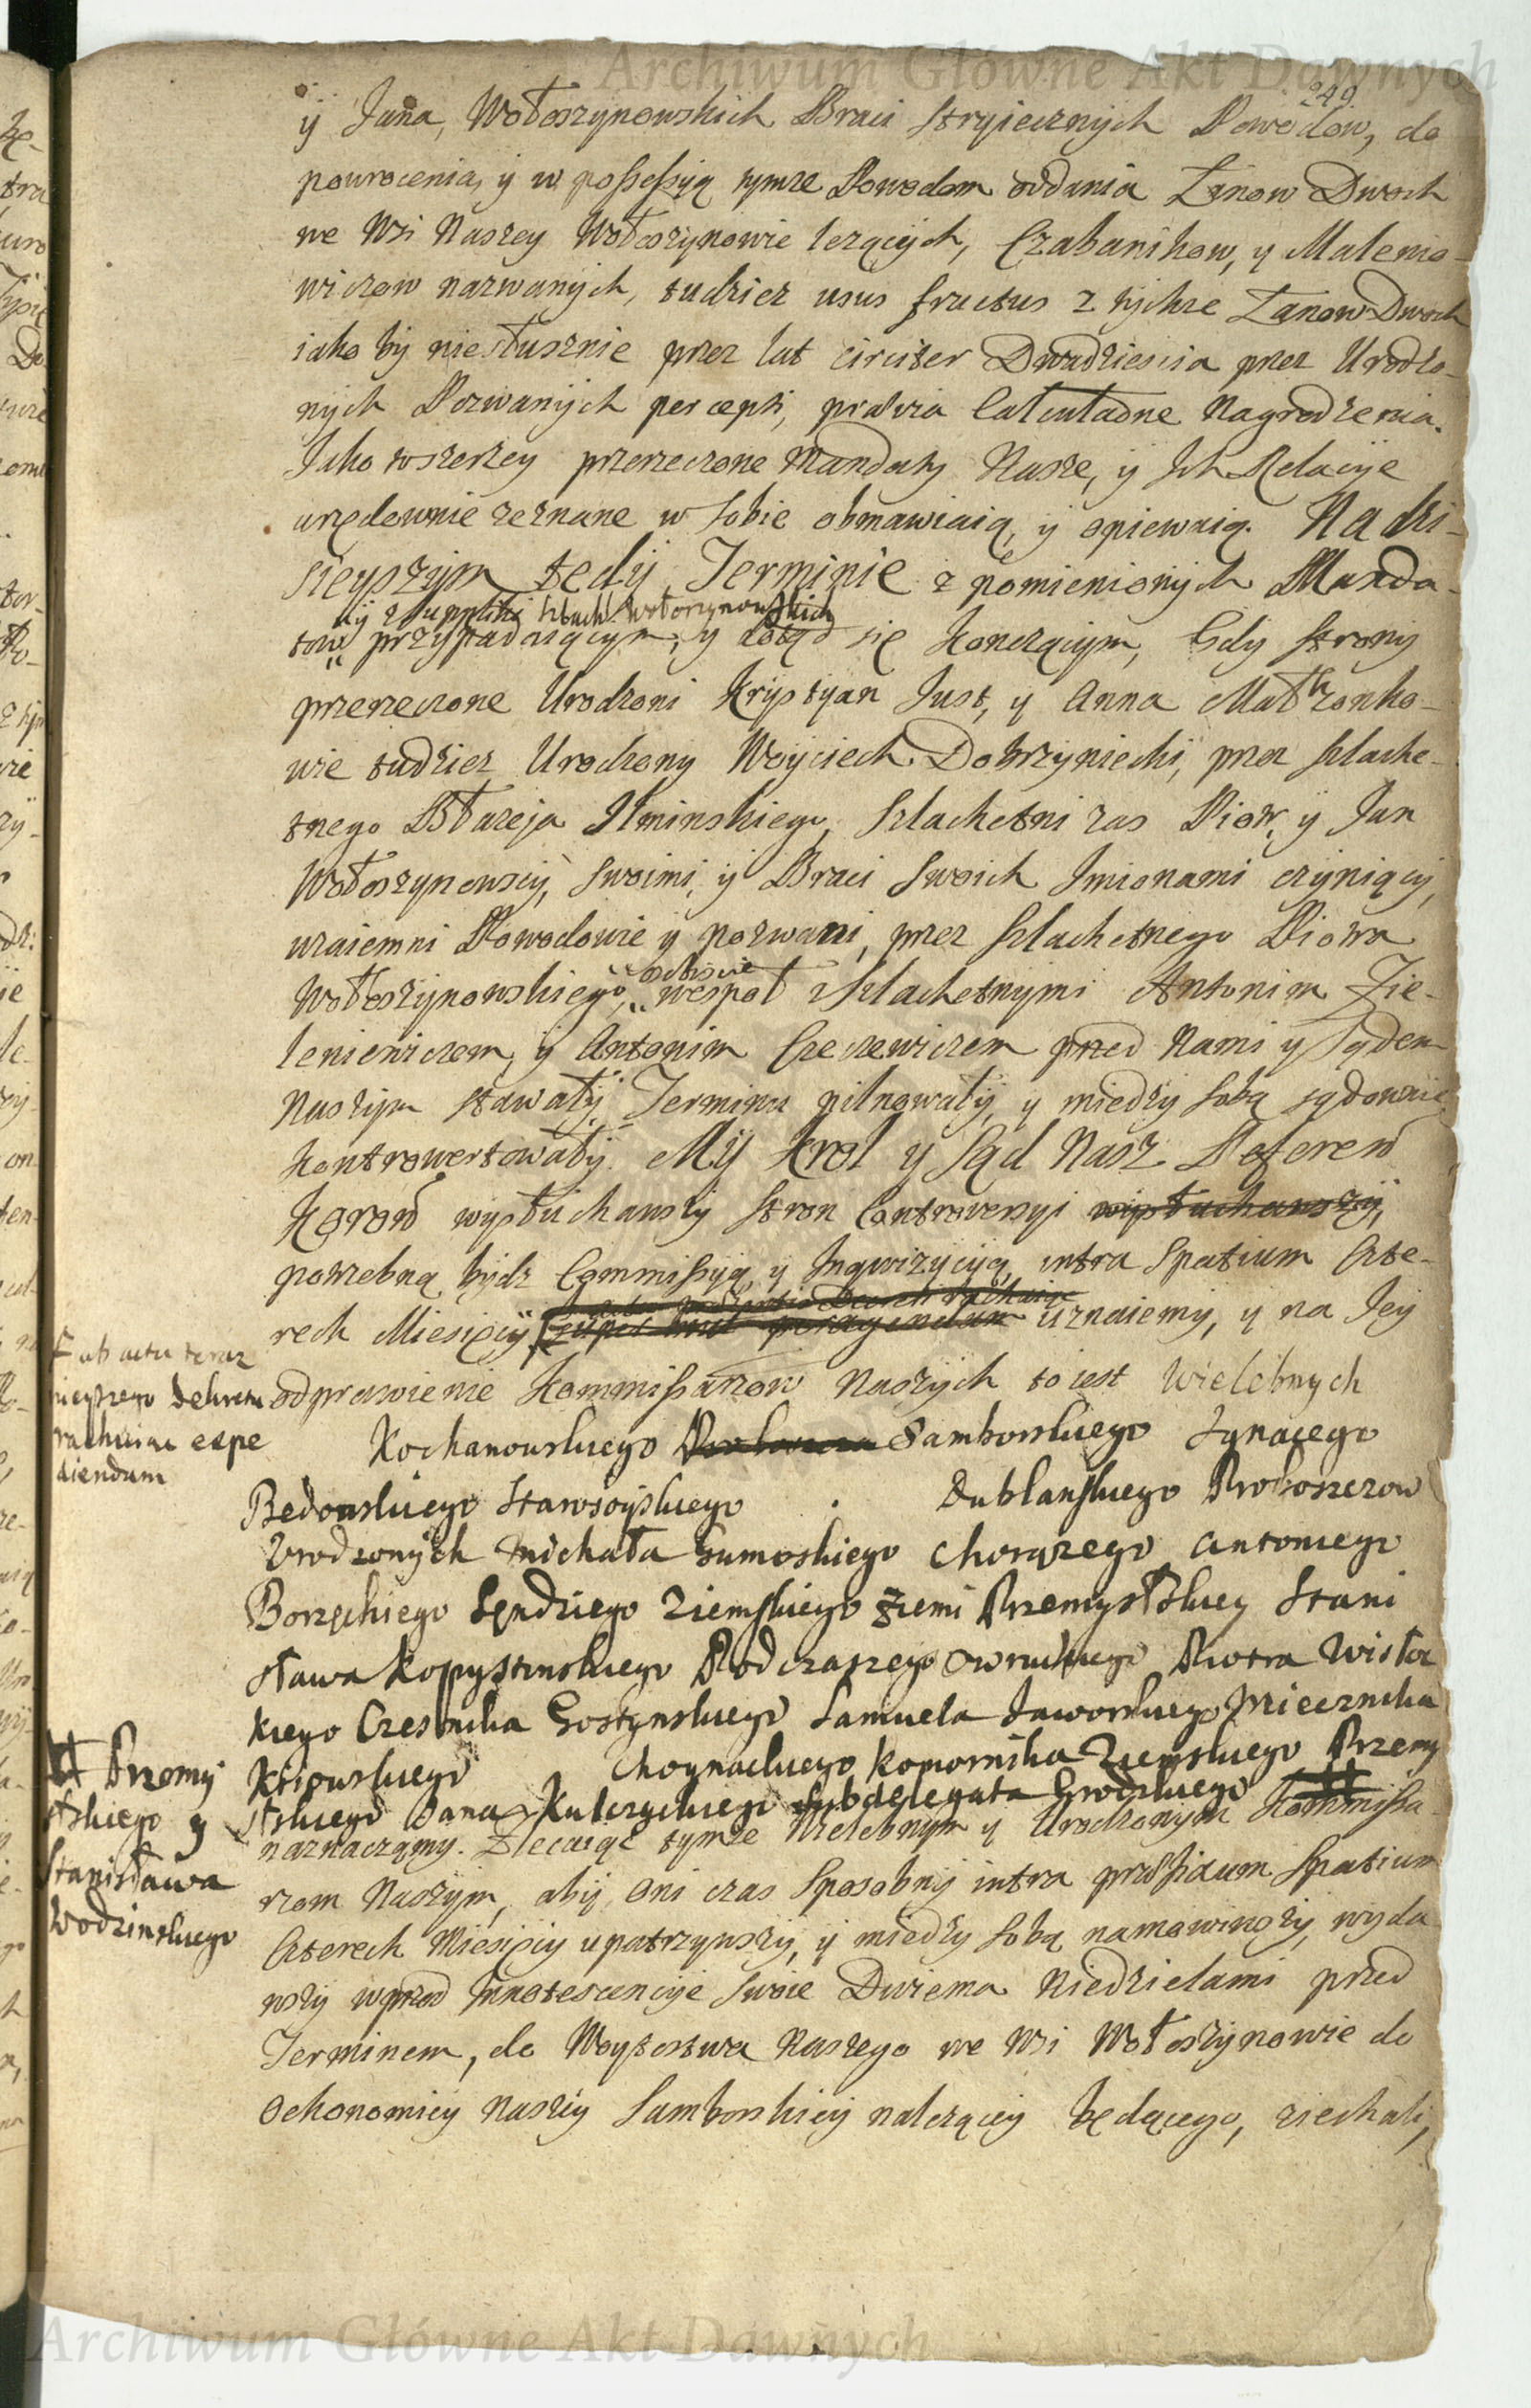 Archiwum Główne Akt Dawnych
249
y Jana, Wołoszynowskich Braci stryiecznych Powodow, do
powrocenia, y w possessyą tymze Powodom oddania Łanow Dwoch
we Wsi Naszey Wołoszynowie lezących, Czabanikow, y Malenio-
wiczow nazwanych, tudziez usus fructus z tychze Łanow Dwoch
iako by niesłusznie przez lat circiter Dwadziescia przez Urodzo-
nych Pozwanych percepti, prawia Calculatione Nagrodzenia.
Jako szerzey przerzeczone Mandaty Nasze, y Ich Relacye
urzędownie zeznane w sobie obmawiaią, y opiewaią. Na dzi-
sieyszym tedy Terminie z pomienionych Manda-
y z suppliki Szlach: Wołoszynowskich
tow przypadaiącym, y dotąd się konczącym, Gdy strony
przerzeczone Urodzoni Krystyan Just, y Anna Małzonko-
wie tudziez Urodzony Woyciech Dobrzyniecki, przez szlache-
tnego Błazeja Ilminskiego, Szlachetni zas Piotr, y Jan
Wołoszynowscy, swoimi, y Braci swoich Imionami czyniący,
wzaiemni Powodowie y pozwani, przez szlachetnego Piotra
oczbiscie
Wołoszynowskiego, wespoł z Szlachetnymi Antonim Zie-
leniewiczem, y Antonim Czeczewiczem przed Nami y Sądem
Naszym stawały Terminu pilnowały, y miedzy sobą sądownie
kontrowertowały. My Krol y Sąd Nasz Referend
Koron wysłuchawszy stron Controversyi wysłuchawszy,
potrzebną bydz Commissyą, y Inqwizycyą, intra Spatium Czte-
rech Miesięcy uznaiemy, y na Jey
ƒ ab actu teraz
nieyszego dekretu
rachuiąc expe
diendum
odprawienie Kommissarzow Naszych to iest Wielebnych
Kochanowskiego Samborskiego Ignacego
Bedonskiego Starosoyskiego Dublanskiego Proboszczow
Urodzonych Michała Humoskiego Chorązego Antoniego
Borzęckiego Sędziego Ziemskiego Ziemi Przemysłskiey Stani
sława Kopystenskiego Podczaszego Owruckiego Piotra Wisłoc
kiego Czesnika Gostynskiego Samuela Jaworskiego Miecznika
Kiiowskiego Choynackiego Komornika Ziemskiego Przemy
słskiego Jana Kulczyckiego Subdelegata Grodzkiego
# Przemy
słskiego y
Stanisława
Wodzinskiego
naznaczamy. Zlecaiąc tymze Wielebnym y Urodzonym Kommissa-
rzom Naszym, aby Oni czas sposobny intra praefixum Spatium
Czterech Miesięcy upatrzywszy, y miedzy sobą namowiwszy, wyda-
wszy wprzod Innotescencye swoie Dwiema Niedzielami przed
Terminem, do Woytostwa Naszego we Wsi Wołoszynowie do
Oekonomiey Naszey Samborskiey nalezącey będącego, ziechali,
Archiwum Główne Akt Dawnych